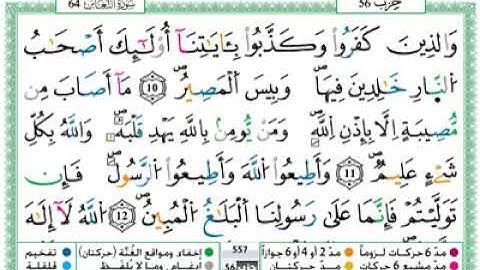 64 سُورَةُ التَّغَابُن حِزْب 56
وَالذِينَ كَفَرُوا وَكَذَّبُوا بِـَٔايَٰتِنَآ أُوْلَٰٓئِكَ أَصْحَٰبُ
النَّارِ خَٰلِدِينَ فِيهَا وَبِيسَ الْمَصِيرُ 10 مَآ أَصَابَ مِن
مُّصِيبَةٍ اِلَّا بِإِذْنِ اِللَّهِ وَمَنْ يُّومِنۢ بِاللَّهِ يَهْدِ قَلْبَهُۥ وَاللَّهُ بِكُلِّ
شَےْءٍ عَلِيمٌ 11 وَأَطِيعُوا اللَّهَ وَأَطِيعُوا الرَّسُولَ فَإِن
تَوَلَّيْتُمْ فَإِنَّمَا عَلَىٰ رَسُولِنَا الْبَلَٰغُ الْمُبِينُ 12 اللَّهُ لَآ إِلَٰهَ
مدّ 6 حركات لزوماً مدّ 2 أو 4 أو 6 جوازاً 557 إخفاء، ومواقع الغُنَّة (حركتان) تفخيم
مدّ مشبع 6 حركات مدّ حركتان 56 إدغام، وما لا يُلفَظ قلقلة